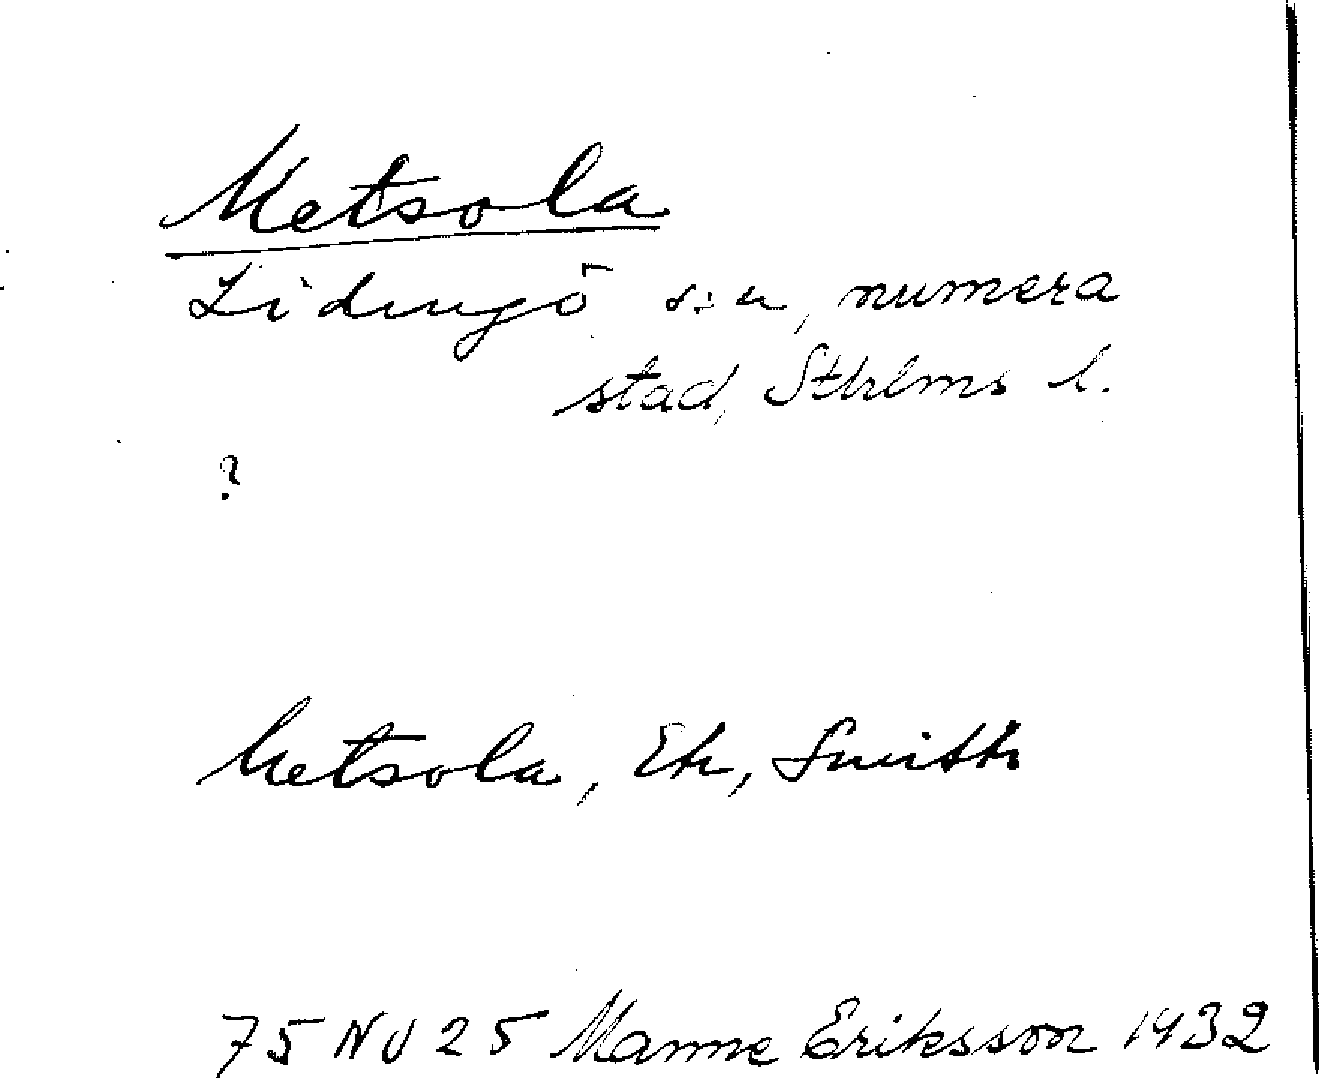 Metsola
Lidingö s:n, numera
stad, Sthlms l.
?
Metsola, Ek, Smith
75 NV 25 Manne Eriksson 1932